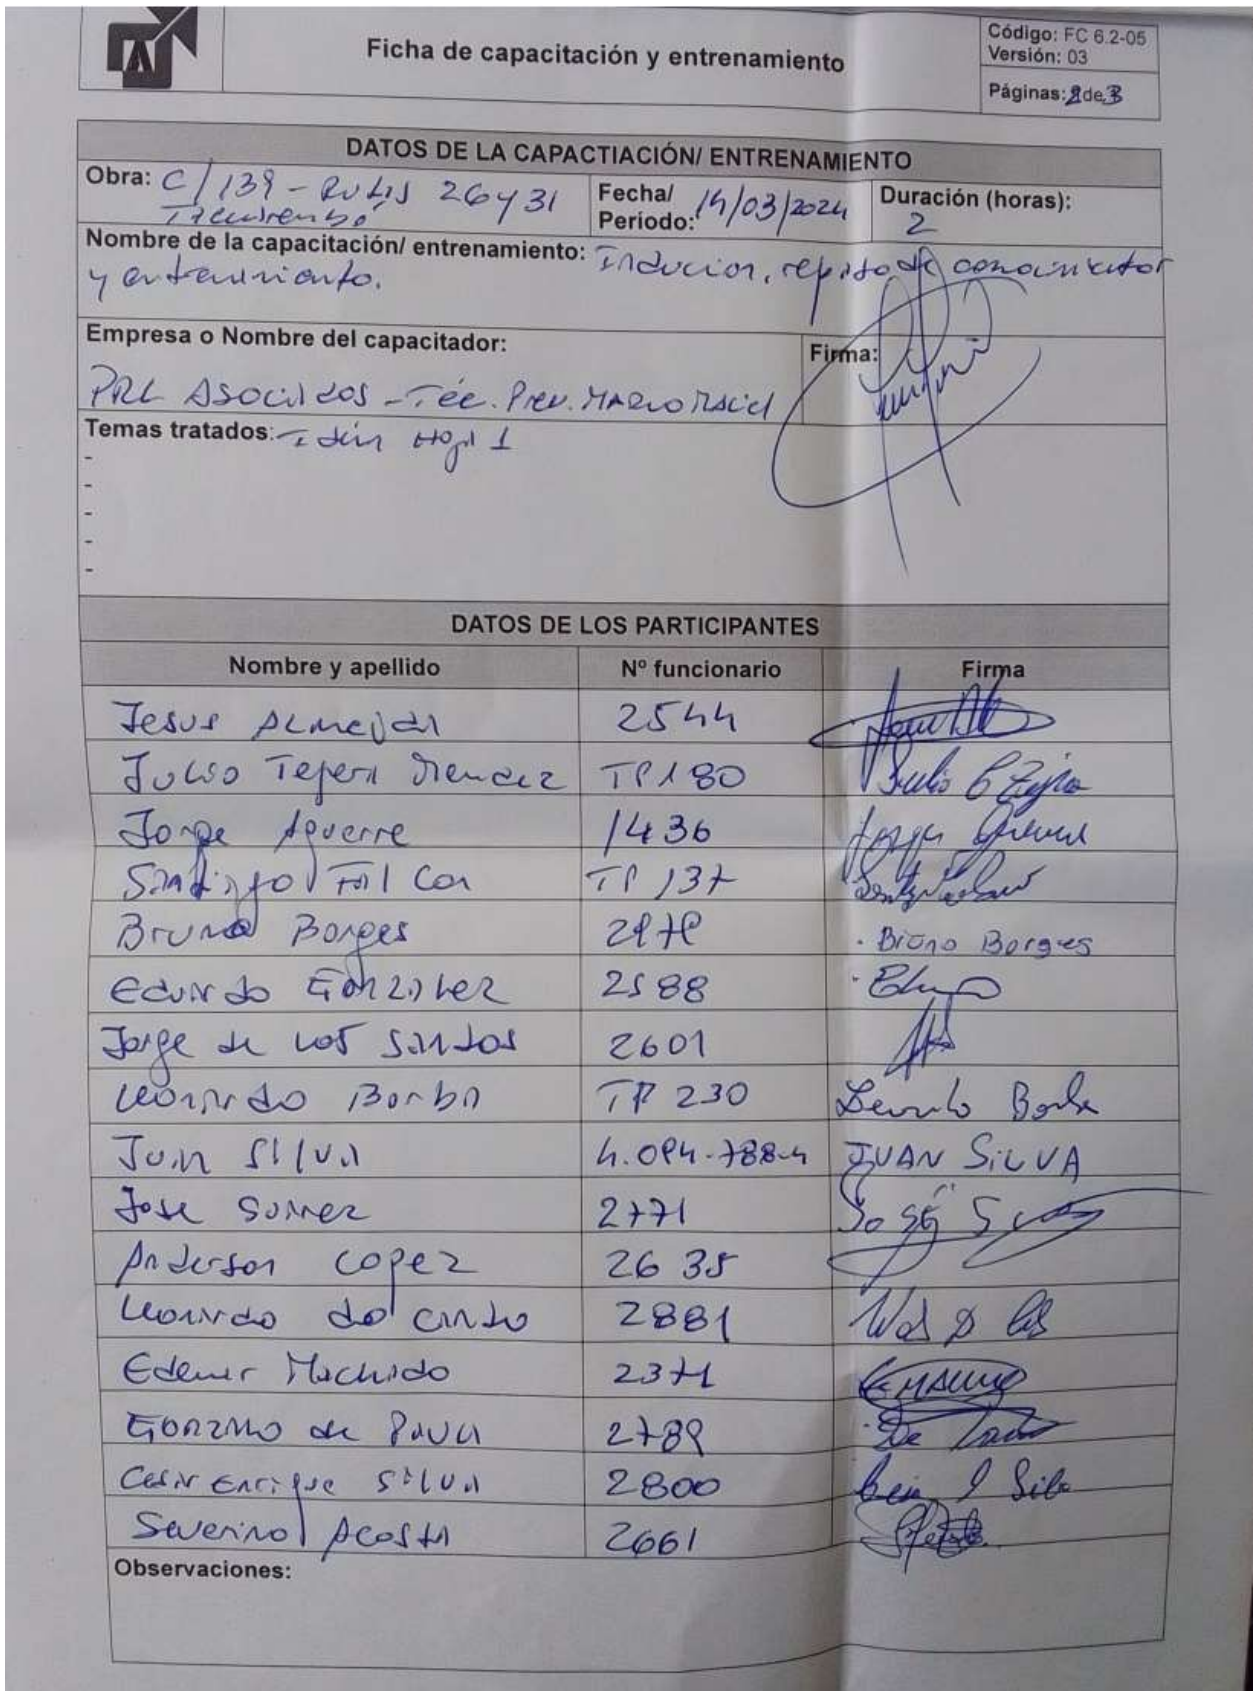 Ficha de capacitación y entrenamiento
Código: FC 6.2-05
Versión: 03
Páginas: 2 de 3
DATOS DE LA CAPACTIACIÓN/ ENTRENAMIENTO
Obra: C/139 - Rutas 26 y 31
Tacuarembó
Fecha/ Período: 14/03/2024
Duración (horas): 2
Nombre de la capacitación/ entrenamiento: Inducion, repaso de conocimientos
y entrenamiento.
Empresa o Nombre del capacitador:
PRL Asociados - Téc. Prev. Mario Maciel
Firma:
Temas tratados: Idem Hoja 1
-
-
-
-
-
DATOS DE LOS PARTICIPANTES
Nombre y apellido Nº funcionario Firma
Jesus Almeida 2544
Julio Tejera Mendez TP180 Julio C Tejera
Jorge Aguerre 1436 Jorge Aguerre
Santiago Falcon TP 137
Bruno Borges 2979 Bruno Borges
Eduardo Gonzalez 2588
Jorge de los Santos 2601
Leonardo Borba TP 230 Leonardo Borba
Juan Silva 4.094.788-4 JUAN SiLVA
Jose Suarez 2771 José S
Anderson Lopez 2635
Leonardo do Canto 2881
Edemar Machado 2371
Gonzalo de Paula 2789
Cesar Enrique Silva 2800
Severino Acosta 2661
Observaciones: